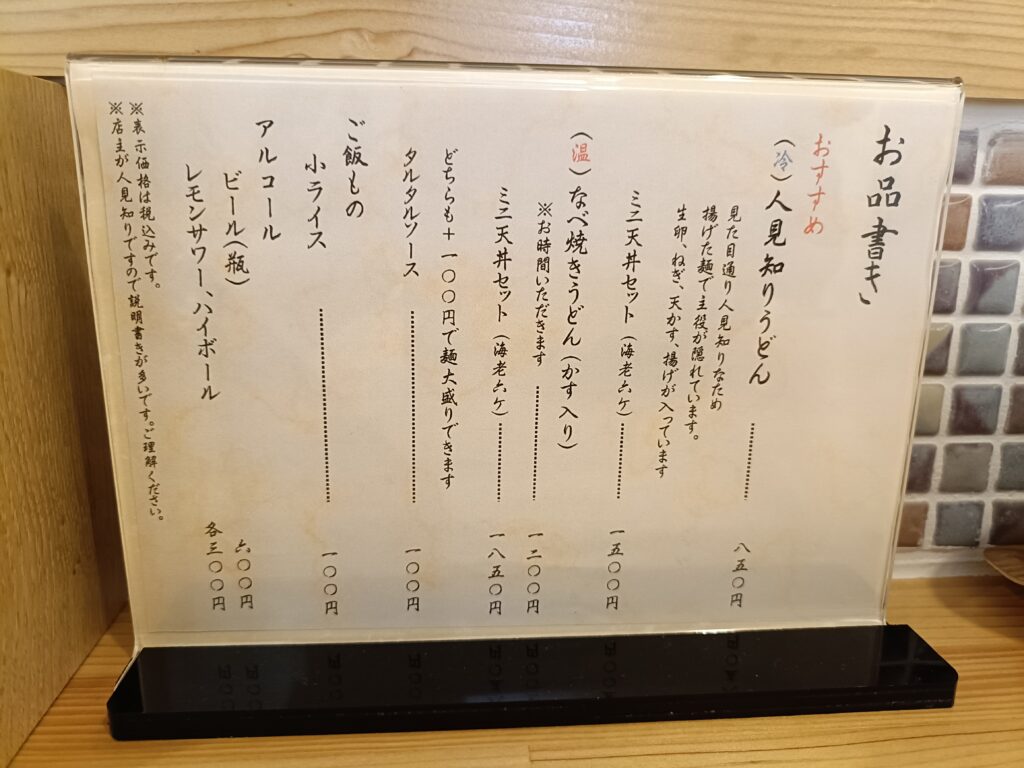 お品書き
おすすめ
(冷)人見知りうどん 八五〇円
見た目通り人見知りなため
揚げた麺で主役が隠れています。
生卵、ねぎ、天かす、揚げが入っています
ミニ天丼セット(海老六ケ) 一五〇〇円
(温)なべ焼きうどん(かす入り)
※お時間いただきます 一二〇〇円
ミニ天丼セット(海老六ケ) 一八五〇円
どちらも+一〇〇円で麺大盛りできます
タルタルソース 一〇〇円
ご飯もの
小ライス 一〇〇円
アルコール
ビール(瓶) 六〇〇円
レモンサワー、ハイボール 各三〇〇円
※表示価格は税込みです。
※店主が人見知りですので説明書きが多いです。ご理解ください。